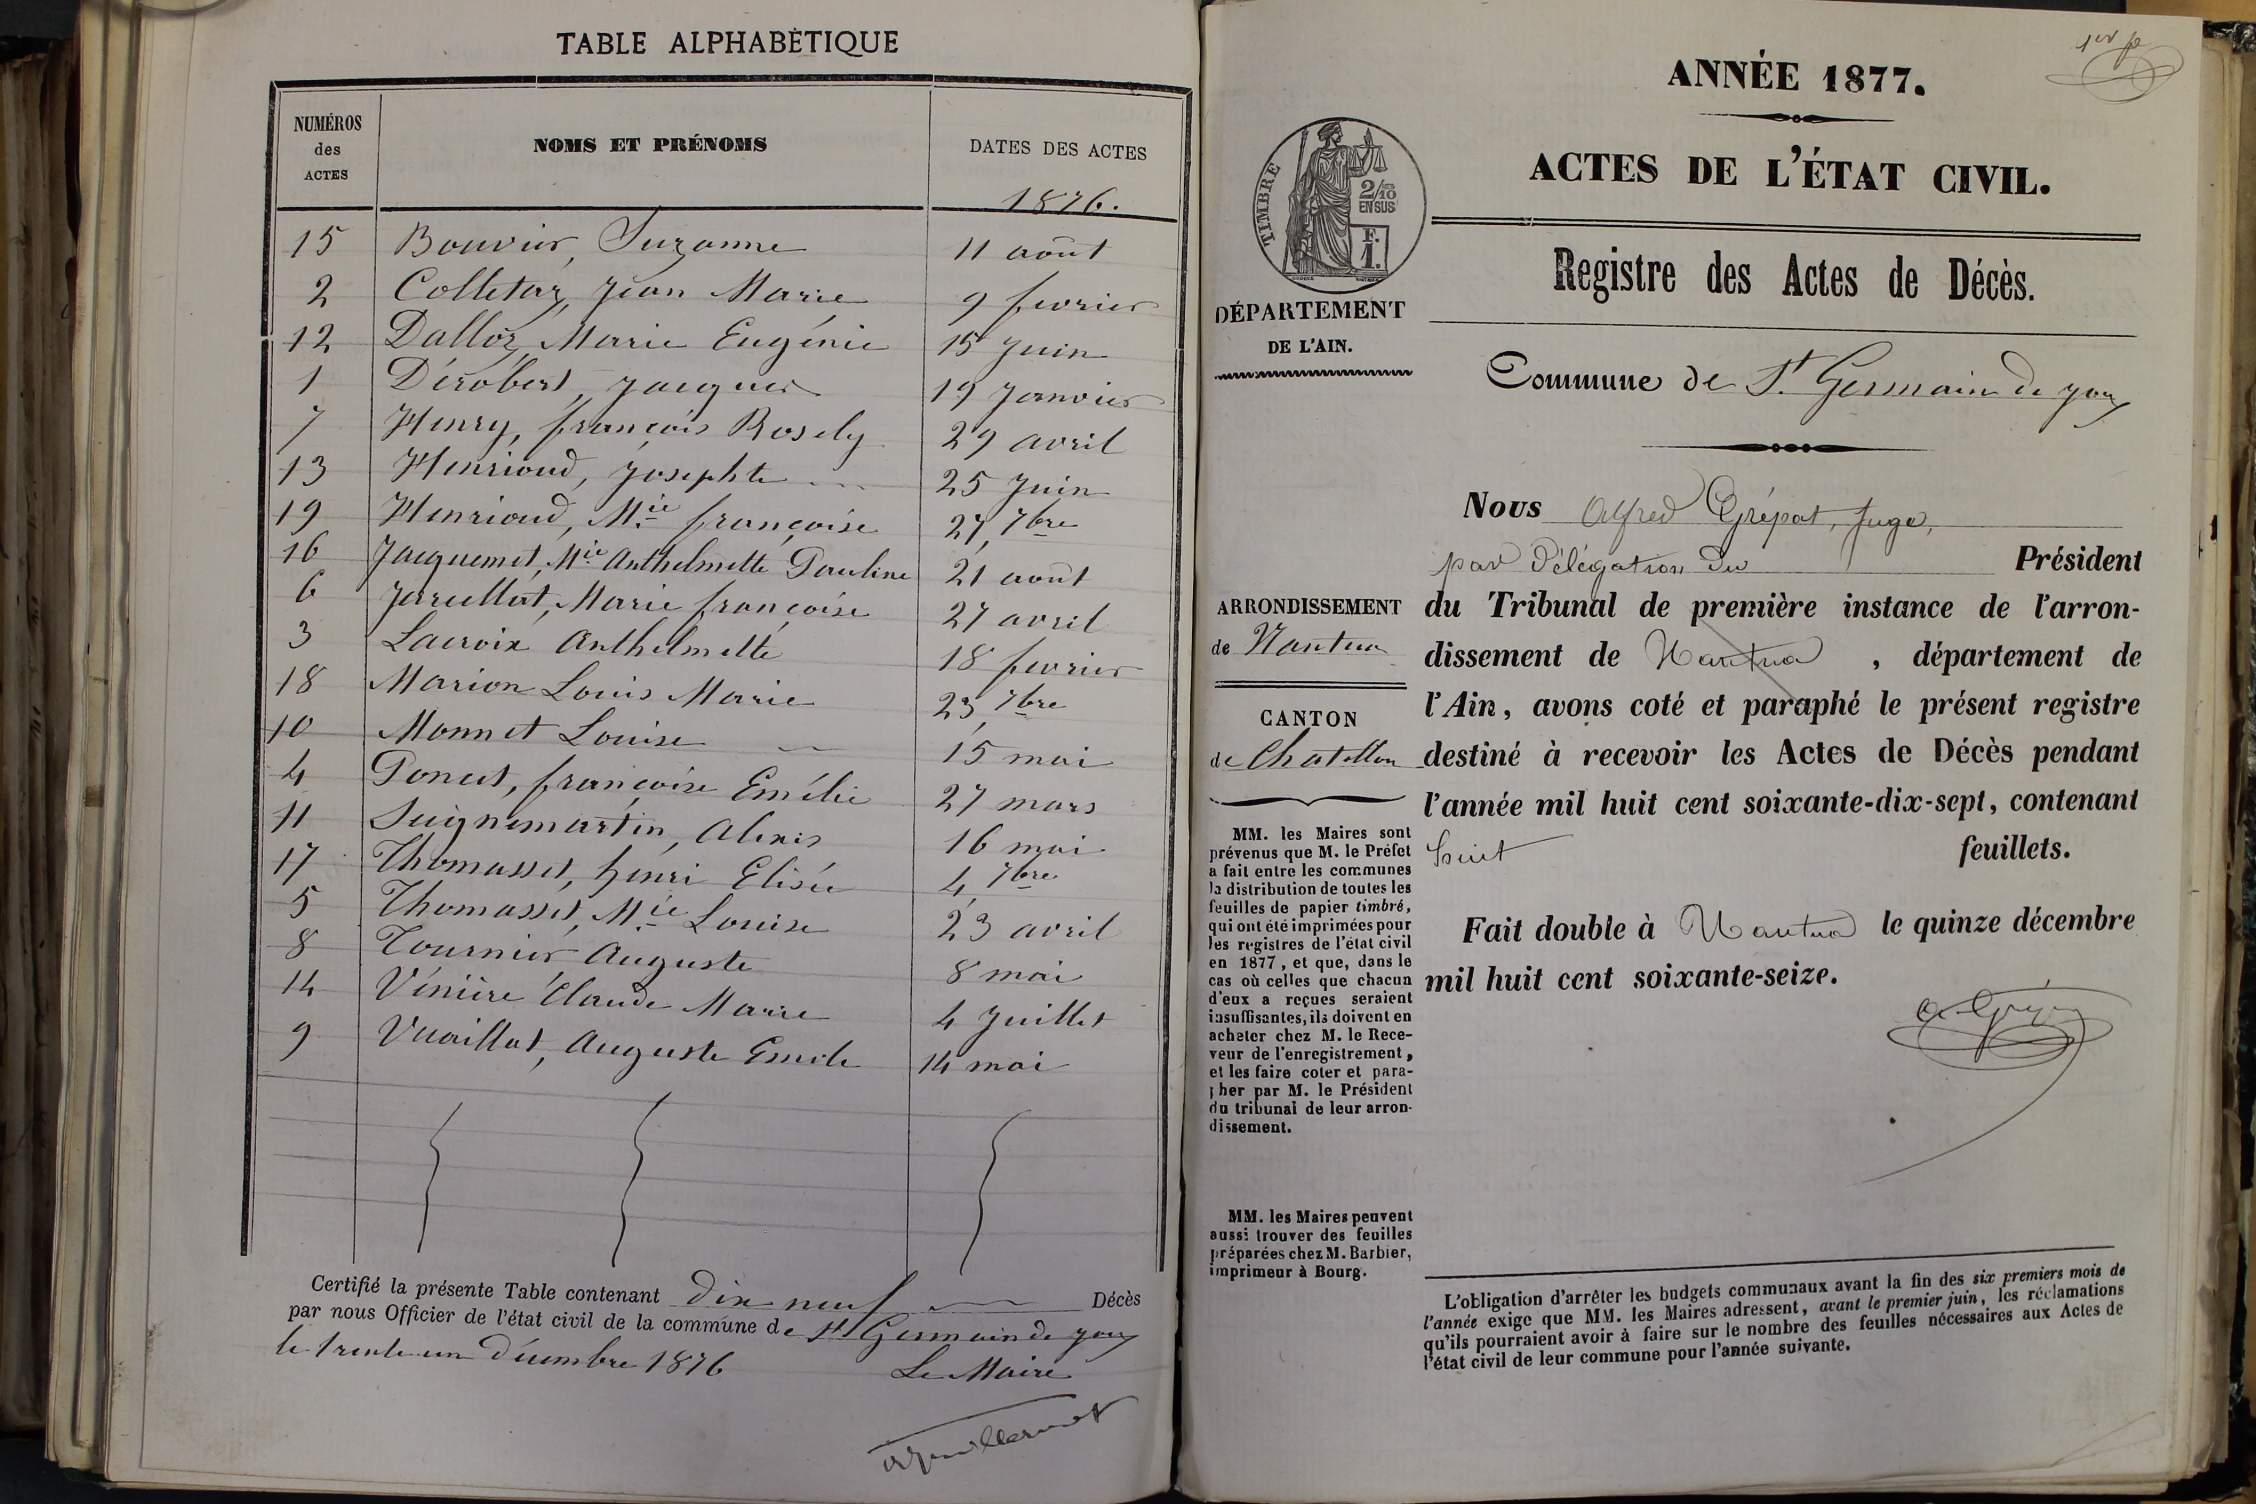 TABLE ALPHABÉTIQUE
NUMÉROS des ACTES
NOMS ET PRÉNOMS
DATES DES ACTES
1876.
15 Bouvier, Suzanne 11 août
2 Colletaz, Jean Marie 9 fevrier
12 Dalloz, Marie Eugénie 15 Juin
1 Dérobert, Jacques 19 Janvier
7 Henry, françois Rosely 29 avril
13 Henrioud, Josephte 25 Juin
19 Henrioud, Mie françoise 27, 7bre
16 Jacquemet, Mie Anthelmette Pauline 21 août
6 Jarullat, Marie françoise 27 avril
3 Lacroix Anthelmette 18 fevrier
18 Marion Louis Marie 23, 7bre
10 Monnet Louise 15 mai
4 Poncet, françoise Emélie 27 mars
11 Seignemartin, Alexis 16 mai
17 Thomasset, henri Elisée 4, 7bre
5 Thomasset, Mie Louise 23 avril
8 Tournier Auguste 8 mai
14 Vénière Claude Marie 4 Juillet
9 Vuaillat, Auguste Emile 14 mai
Certifié la présente Table contenant dix neuf Décès
par nous Officier de l'état civil de la commune de St Germain de Joux
le trente un Décembre 1876
Le Maire
1er f
ANNÉE 1877.
ACTES DE L'ÉTAT CIVIL.
Registre des Actes de Décès.
TIMBRE
2/10
EN SUS
F.
1.
DÉPARTEMENT
DE L'AIN.
Commune de St. Germain de Joux
ARRONDISSEMENT
de Nantua
CANTON
de Chatillon
MM. les Maires sont
prévenus que M. le Préfet
a fait entre les communes
la distribution de toutes les
feuilles de papier timbré,
qui ont été imprimées pour
les registres de l'état civil
en 1877, et que, dans le
cas où celles que chacun
d'eux a reçues seraient
insuffisantes, ils doivent en
acheter chez M. le Rece-
veur de l'enregistrement,
et les faire coter et para-
pher par M. le Président
du tribunal de leur arron-
dissement.
MM. les Maires peuvent
aussi trouver des feuilles
préparées chez M. Barbier,
imprimeur à Bourg.
Nous Alfred Grépat, Juge,
par Délégation du Président
du Tribunal de première instance de l'arron-
dissement de Nantua, département de
l'Ain, avons coté et paraphé le présent registre
destiné à recevoir les Actes de Décès pendant
l'année mil huit cent soixante-dix-sept, contenant
huit feuillets.
Fait double à Nantua le quinze décembre
mil huit cent soixante-seize.
L'obligation d'arrêter les budgets communaux avant la fin des six premiers mois de
l'année exige que MM. les Maires adressent, avant le premier juin, les réclamations
qu'ils pourraient avoir à faire sur le nombre des feuilles nécessaires aux Actes de
l'état civil de leur commune pour l'année suivante.